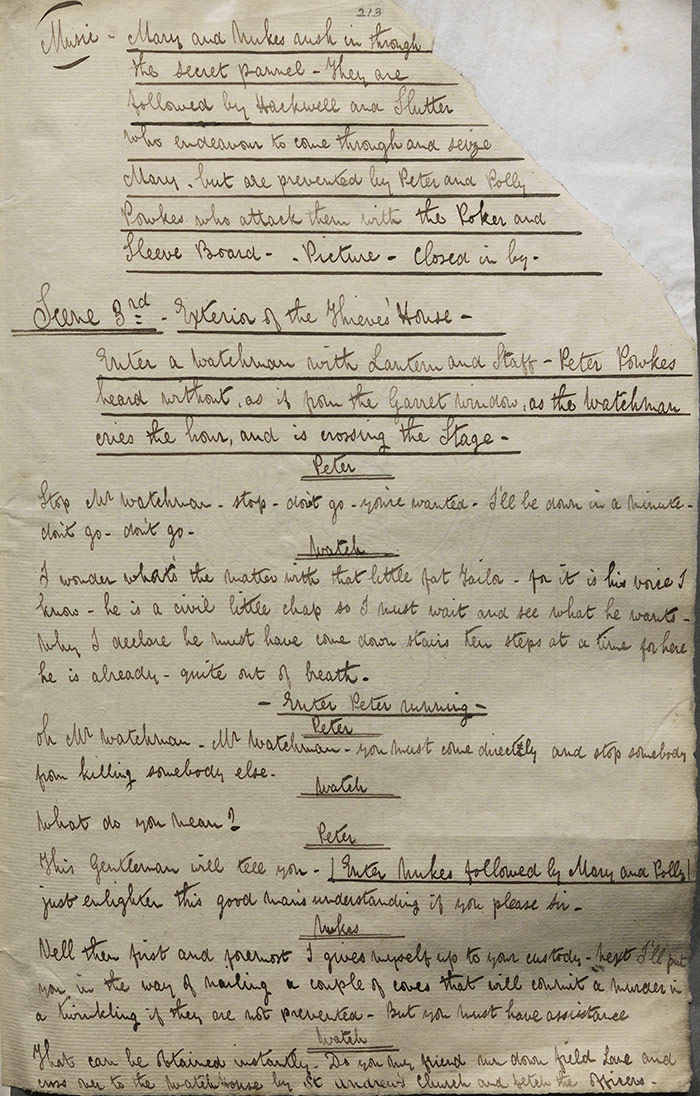 213
Music - Mary and Nukes rush in through
the secret pannel - They are
followed by Hackwell and Slutter
who endeavour to come through and seize
Mary. but are prevented by Peter and Polly
Powkes who attack them with the Poker and
Sleeve Board - . Picture - Closed in by -
Scene 3rd - Exterior of the Thieves' House -
Enter a Watchman with Lantern and Staff - Peter Powkes
heard without, as if from the Garret window, as the Watchman
cries the hour, and is crossing the Stage -
Peter
Stop Mr Watchman - stop - don't go - you're wanted - I'll be down in a minute -
don't go - don't go -
Watch
I wonder what's the matter with that little fat Tailor - for it is his voice I
know - he is a civil little chap so I must wait and see what he wants -
Why I declare he must have come down stairs ten steps at a time for here
he is already - quite out of breath -
- Enter Peter running -
Peter
oh Mr Watchman - Mr Watchman - you must come directly and stop somebody
from killing somebody else -
Watch
What do you mean?
Peter
This Gentleman will tell you - [Enter Nukes followed by Mary and Polly]
just enlighten this good man's understanding if you please Sir -
Nukes
Vell then first and foremost I gives myself up to your custody - next I'll put
you in the way of nailing a couple of coves that will commit a murder in
a twinkling if they are not prevented - But you must have assistance
Watch
That can be obtained instantly - Do you my friend run down field Lane and
cross over to the Watch house by St Andrew's Church and fetch the officers -